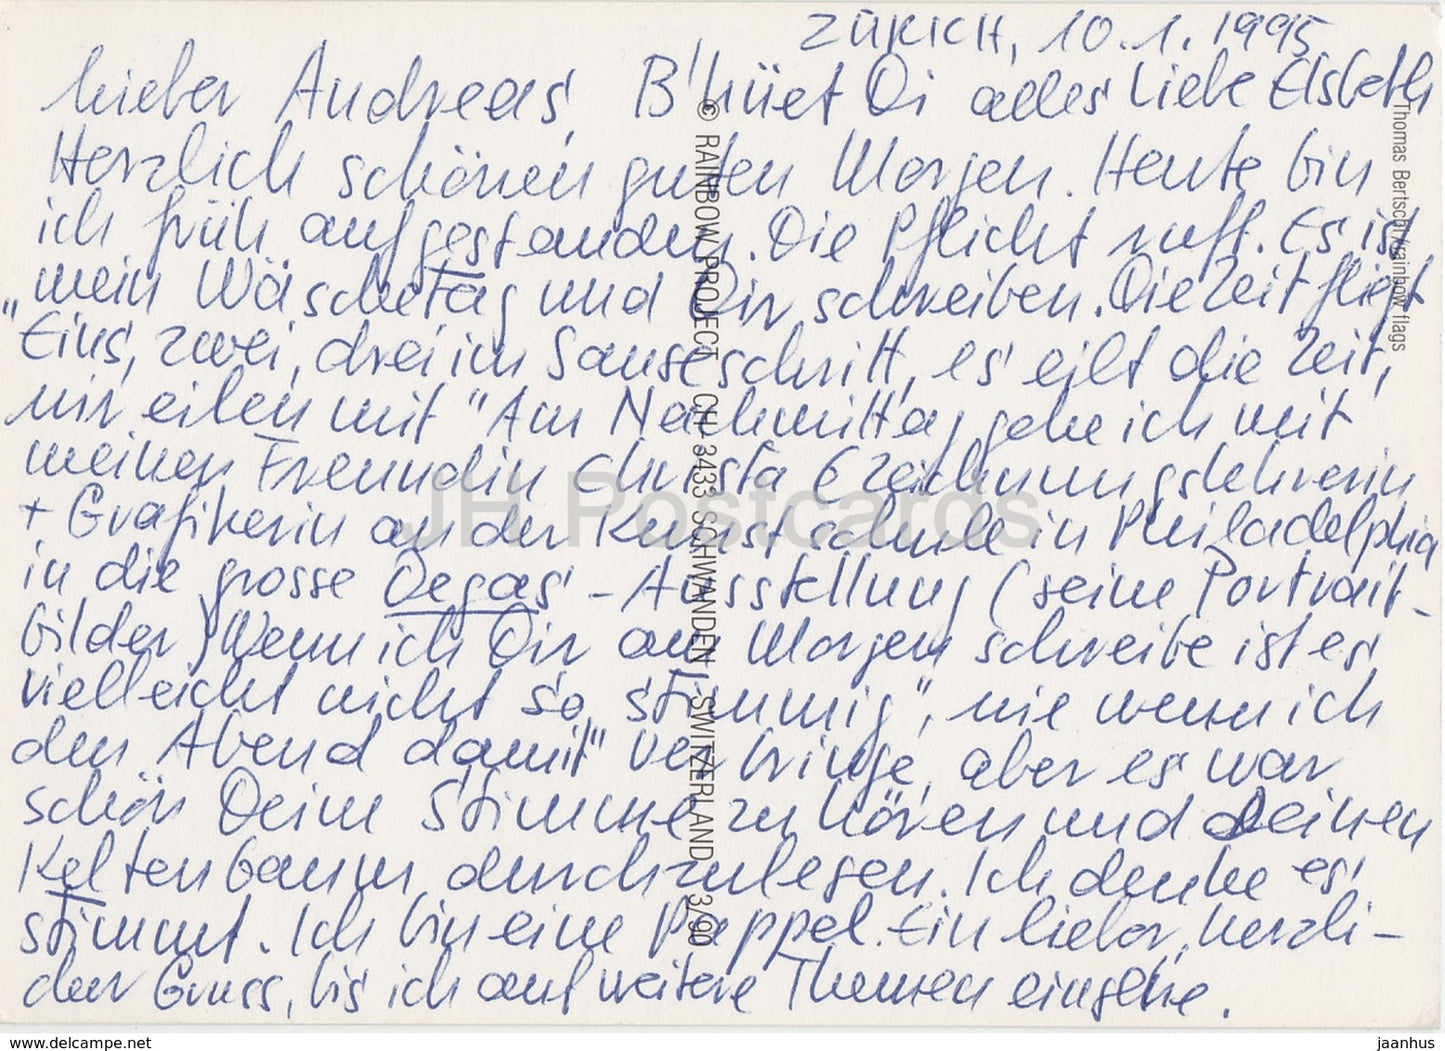 ZÜRICH, 10.1.1995
Lieber Andreas, B'hüet Di alles Liebe Elsbeth
Herzlich schönen guten Morgen. Heute bin
ich früh aufgestanden. Die Pflicht ruft. Es ist
mein Wäschetag und Dir schreiben. Die Zeit flieht
"Eins, zwei, drei im Sauseschritt, es eilt die Zeit,
wir eilen mit" Am Nachmittag gehe ich mit
meiner Freundin Christa (Zeichnungslehrerin
+ Grafikerin an der Kunstschule in Philadelphia
in die grosse Degas - Ausstellung (seine Portrait-
bilder) Wenn ich Dir am Morgen schreibe ist es
vielleicht nicht so "stimmig", wie wenn ich
den Abend damit "verbringe, aber es war
schön Deine Stimme zu hören und deinen
Keltenbaum durchzulesen. Ich denke es
stimmt. Ich bin eine Pappel. Ein lieber, herzli-
cher Gruss, bis ich auf weitere Themen eingehe.
© RAINBOW PROJECT CH-3433 SCHWANDEN / SWITZERLAND 3/90
Thomas Bertschi/rainbow flags
JH Postcards
www.delcampe.net
jaanhus